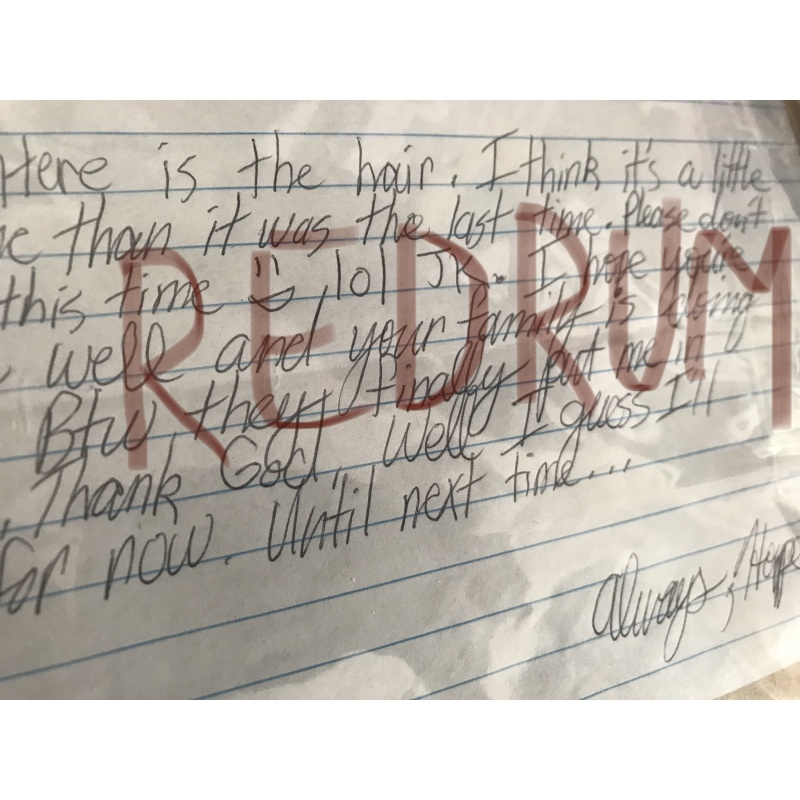 Here is the hair. I think it's a little
than it was the last time. Please don't
this time :) , lol JK. I hope you're
well and your family is doing
Btw, they finally put me in
. Thank God. Well, I guess I'll
for now. Until next time...
Always, Hope
REDRUM